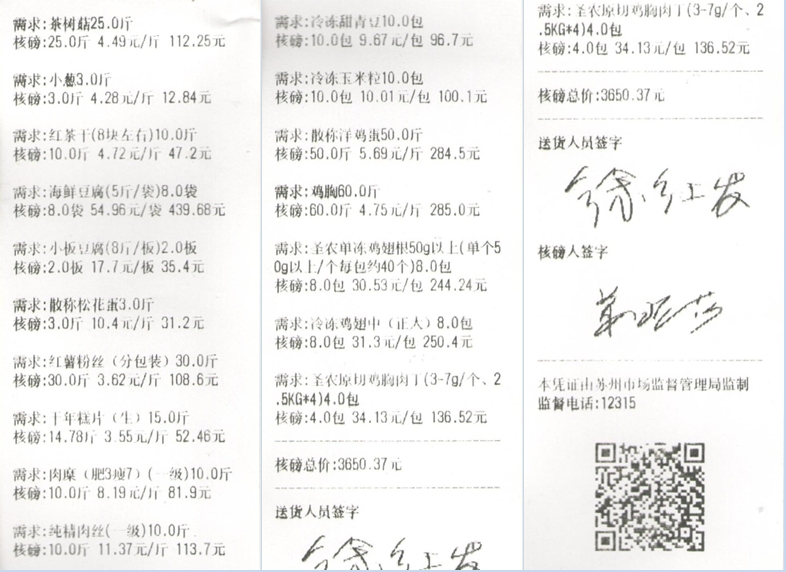 需求:茶树菇25.0斤
核磅:25.0斤 4.49元/斤 112.25元
需求:小葱3.0斤
核磅:3.0斤 4.28元/斤 12.84元
需求:红茶干(8块左右)10.0斤
核磅:10.0斤 4.72元/斤 47.2元
需求:海鲜豆腐(5斤/袋)8.0袋
核磅:8.0袋 54.96元/袋 439.68元
需求:小板豆腐(8斤/板)2.0板
核磅:2.0板 17.7元/板 35.4元
需求:散称松花蛋3.0斤
核磅:3.0斤 10.4元/斤 31.2元
需求:红薯粉丝（分包装）30.0斤
核磅:30.0斤 3.62元/斤 108.6元
需求:干年糕片（生）15.0斤
核磅:14.78斤 3.55元/斤 52.46元
需求:肉糜（肥3瘦7）(一级)10.0斤
核磅:10.0斤 8.19元/斤 81.9元
需求:纯精肉丝(一级)10.0斤
核磅:10.0斤 11.37元/斤 113.7元
需求:冷冻甜青豆10.0包
核磅:10.0包 9.67元/包 96.7元
需求:冷冻玉米粒10.0包
核磅:10.0包 10.01元/包 100.1元
需求:散称洋鸡蛋50.0斤
核磅:50.0斤 5.69元/斤 284.5元
需求:鸡胸60.0斤
核磅:60.0斤 4.75元/斤 285.0元
需求:圣农单冻鸡翅根50g以上(单个5
0g以上/个每包约40个)8.0包
核磅:8.0包 30.53元/包 244.24元
需求:冷冻鸡翅中（正大）8.0包
核磅:8.0包 31.3元/包 250.4元
需求:圣农原切鸡胸肉丁(3-7g/个、2
.5KG*4)4.0包
核磅:4.0包 34.13元/包 136.52元
核磅总价:3650.37元
送货人员签字
需求:圣农原切鸡胸肉丁(3-7g/个、2
.5KG*4)4.0包
核磅:4.0包 34.13元/包 136.52元
核磅总价:3650.37元
送货人员签字
核磅人签字
本凭证由苏州市场监督管理局监制
监督电话:12315